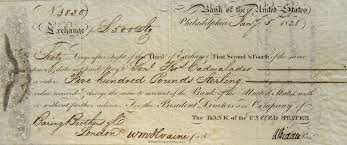 (3030) Bank of the United States
Exchange for £500 Stg Philadelphia Jany 5 1828
Sixty Days after sight of this Third of Exchange First Second & Fourth of the same
tenor & date unpaid Pay to Genl Thos Cadwalader
or order Five hundred Pounds Sterling
value received & charge the same to account of the Bank of the United States with
or without further advice. For the President Directors and Company of
THE BANK OF THE UNITED STATES.
Baring Brothers & Co
London
N Biddle